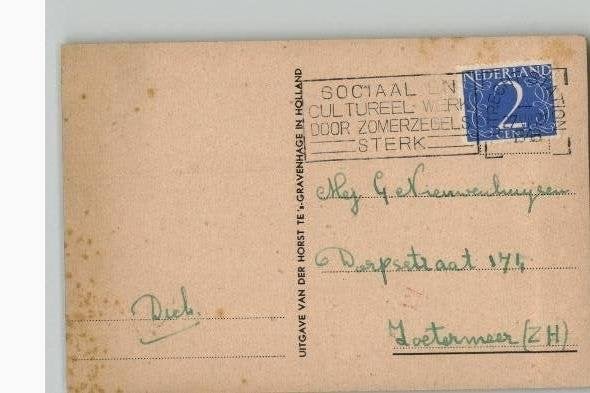 NEDERLAND
2
CENT
SOCIAAL EN
CULTUREEL WERK
DOOR ZOMERZEGELS
STERK
UITGAVE VAN DER HORST TE 's-GRAVENHAGE IN HOLLAND
Mej G Nieuwenhuysen
Dorpsstraat 174
Zoetermeer (ZH)
Dick.